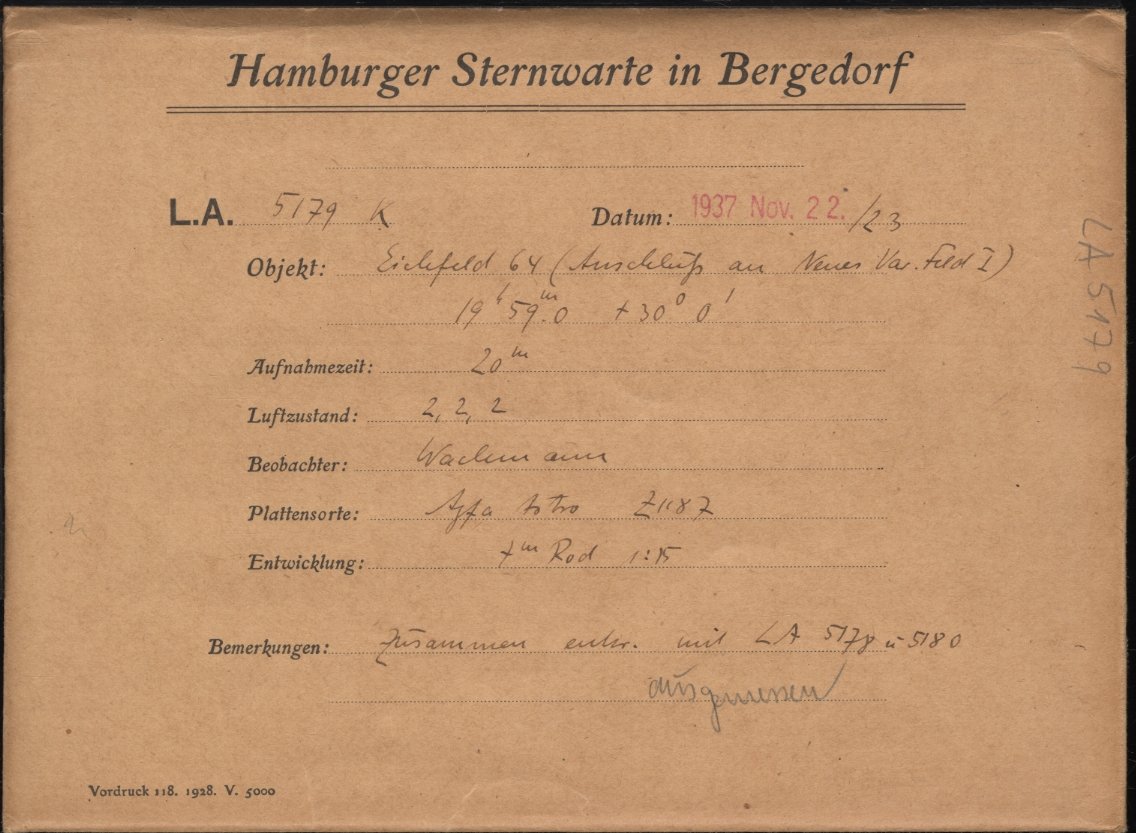 Hamburger Sternwarte in Bergedorf
L.A. 5179 K Datum: 1937 Nov. 22. /23
Objekt: Eichfeld 64 (Anschluß an Neues Var. Feld I)
19ʰ59ᵐ.0 +30° 0'
Aufnahmezeit: 20ᵐ
Luftzustand: 2, 2, 2
Beobachter: Wachmann
Plattensorte: Agfa Astro Z1187
Entwicklung: 7ᵐ Rod 1:15
Bemerkungen: Zusammen entw. mit LA 5178 u 5180
ausgemessen
Vordruck 118. 1928. V. 5000
LA 5179